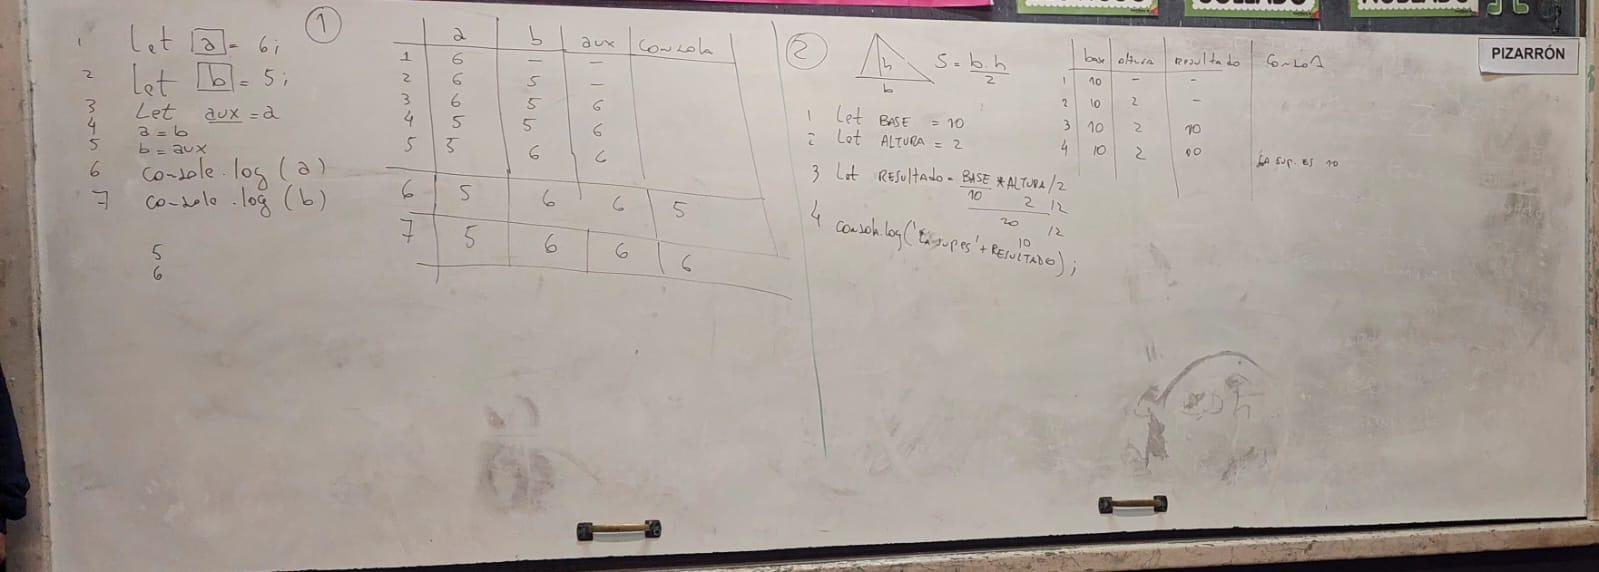 1
1 Let a = 6;
2 Let b = 5;
3 Let aux = a
4 a = b
5 b = aux
6 console.log (a)
7 console.log (b)
5
6
a b aux Consola
1 6 – –
2 6 5 –
3 6 5 6
4 5 5 6
5 5 6 6
6 5 6 6 5
7 5 6 6 6
2
h
b
S = b.h
2
1 Let BASE = 10
2 Let ALTURA = 2
3 Let RESUltado = BASE * ALTURA/2
10 2 /2
20 /2
10
4 console.log('La sup es' + RESULTADO);
base altura resultado
1 10 – –
2 10 2 –
3 10 2 10
4 10 2 10 La sup. es 10
PIZARRÓN